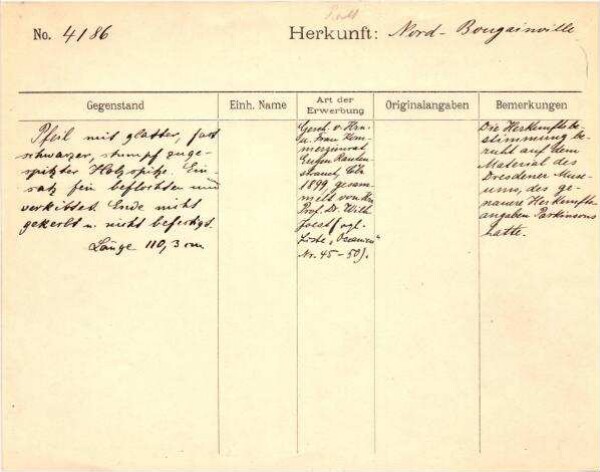 No. 4186
Herkunft: Nord-Bougainville
Gegenstand
Einh. Name
Art der Erwerbung
Originalangaben
Bemerkungen
Pfeil mit glatter, fast
schwarzer, stumpf zuge-
spitzter Holzspitze. Ein-
satz fein beflochten und
verkittet. Ende nicht
gekerbt u. nicht befestigt.
Länge 110,3 cm
Gesch. v. Hrn.
u. Frau Kom-
merzienrat
Eugen Rauten-
strauch, Cöln
1899, gesam-
melt von Hrn.
Prof. Dr. Wilh.
Joest (vgl.
Liste „Oceanien"
Nr. 45-50).
Die Herkunftsbe
stimmung be-
ruht auf dem
Material des
Dresdener Muse-
ums, das ge-
nauere Herkunfts-
angaben Parkinsons
hatte.